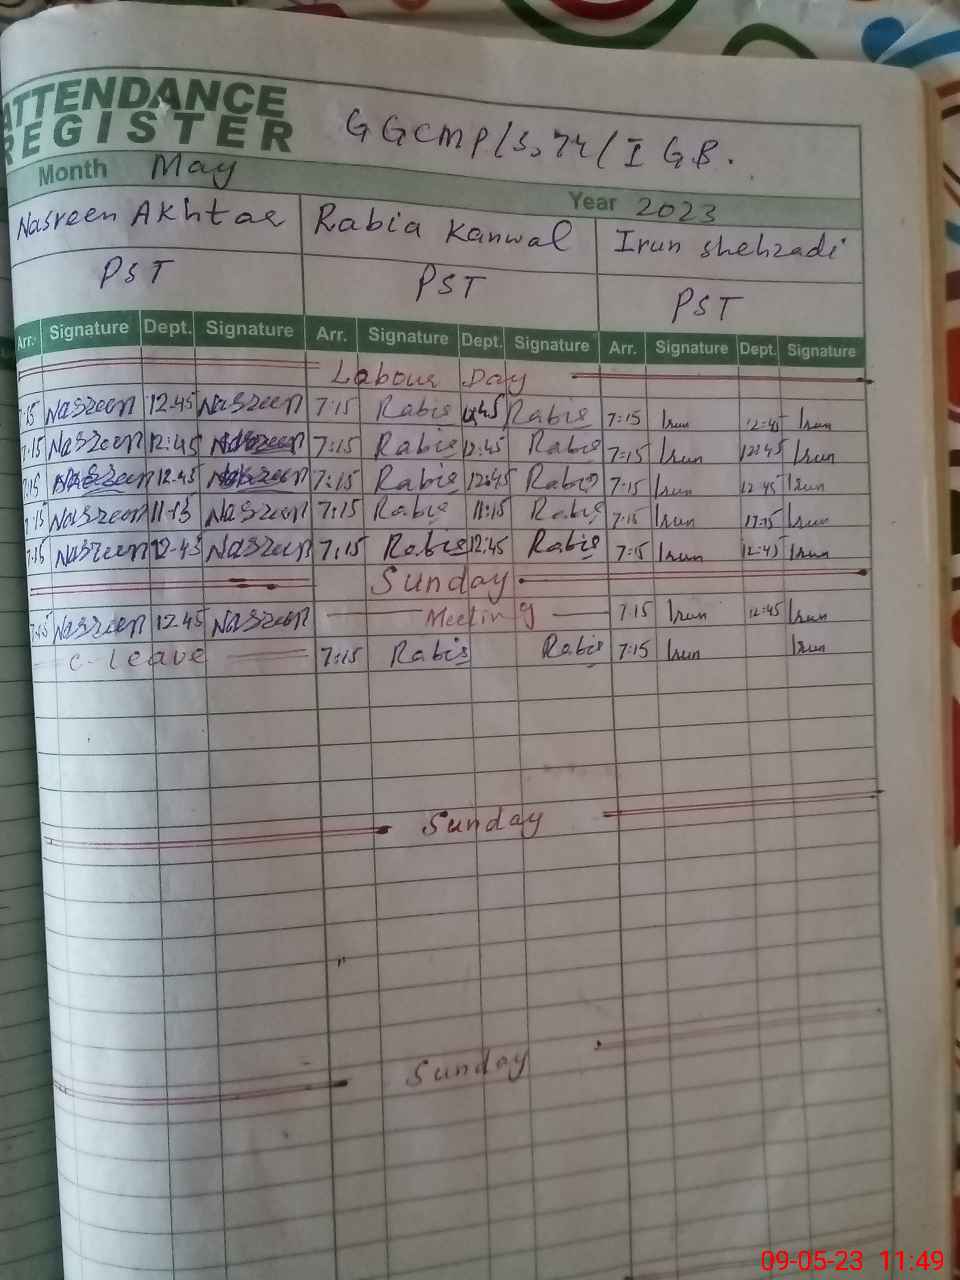 ATTENDANCE
REGISTER
GGCMP/S,74/I GB.
Month May
Year 2023
Nasreen Akhtar Rabia Kanwal Irun shehzadi
PST PST PST
Arr. Signature Dept. Signature Arr. Signature Dept. Signature Arr. Signature Dept. Signature
Labour Day
7:15 Nasreen 12.45 Nasreen 7:15 Rabia 12:45 Rabia 7:15 Irun 12:45 Irun
7:15 Nasreen 12:45 Nasreen 7:15 Rabia 12:45 Rabia 7:15 Irun 12:45 Irun
7:15 Nasreen 12.45 Nasreen 7:15 Rabia 12:45 Rabia 7:15 Irun 12:45 Irun
7:15 Nasreen 11:15 Nasreen 7:15 Rabia 11:15 Rabia 7:15 Irun 11:15 Irun
7:15 Nasreen 12.45 Nasreen 7:15 Rabia 12:45 Rabia 7:15 Irun 12:45 Irun
Sunday
7:15 Nasreen 12.45 Nasreen Meeting 7:15 Irun 12:45 Irun
C-leave 7:15 Rabia Rabia 7:15 Irun Irun
Sunday
Sunday
09-05-23 11:49